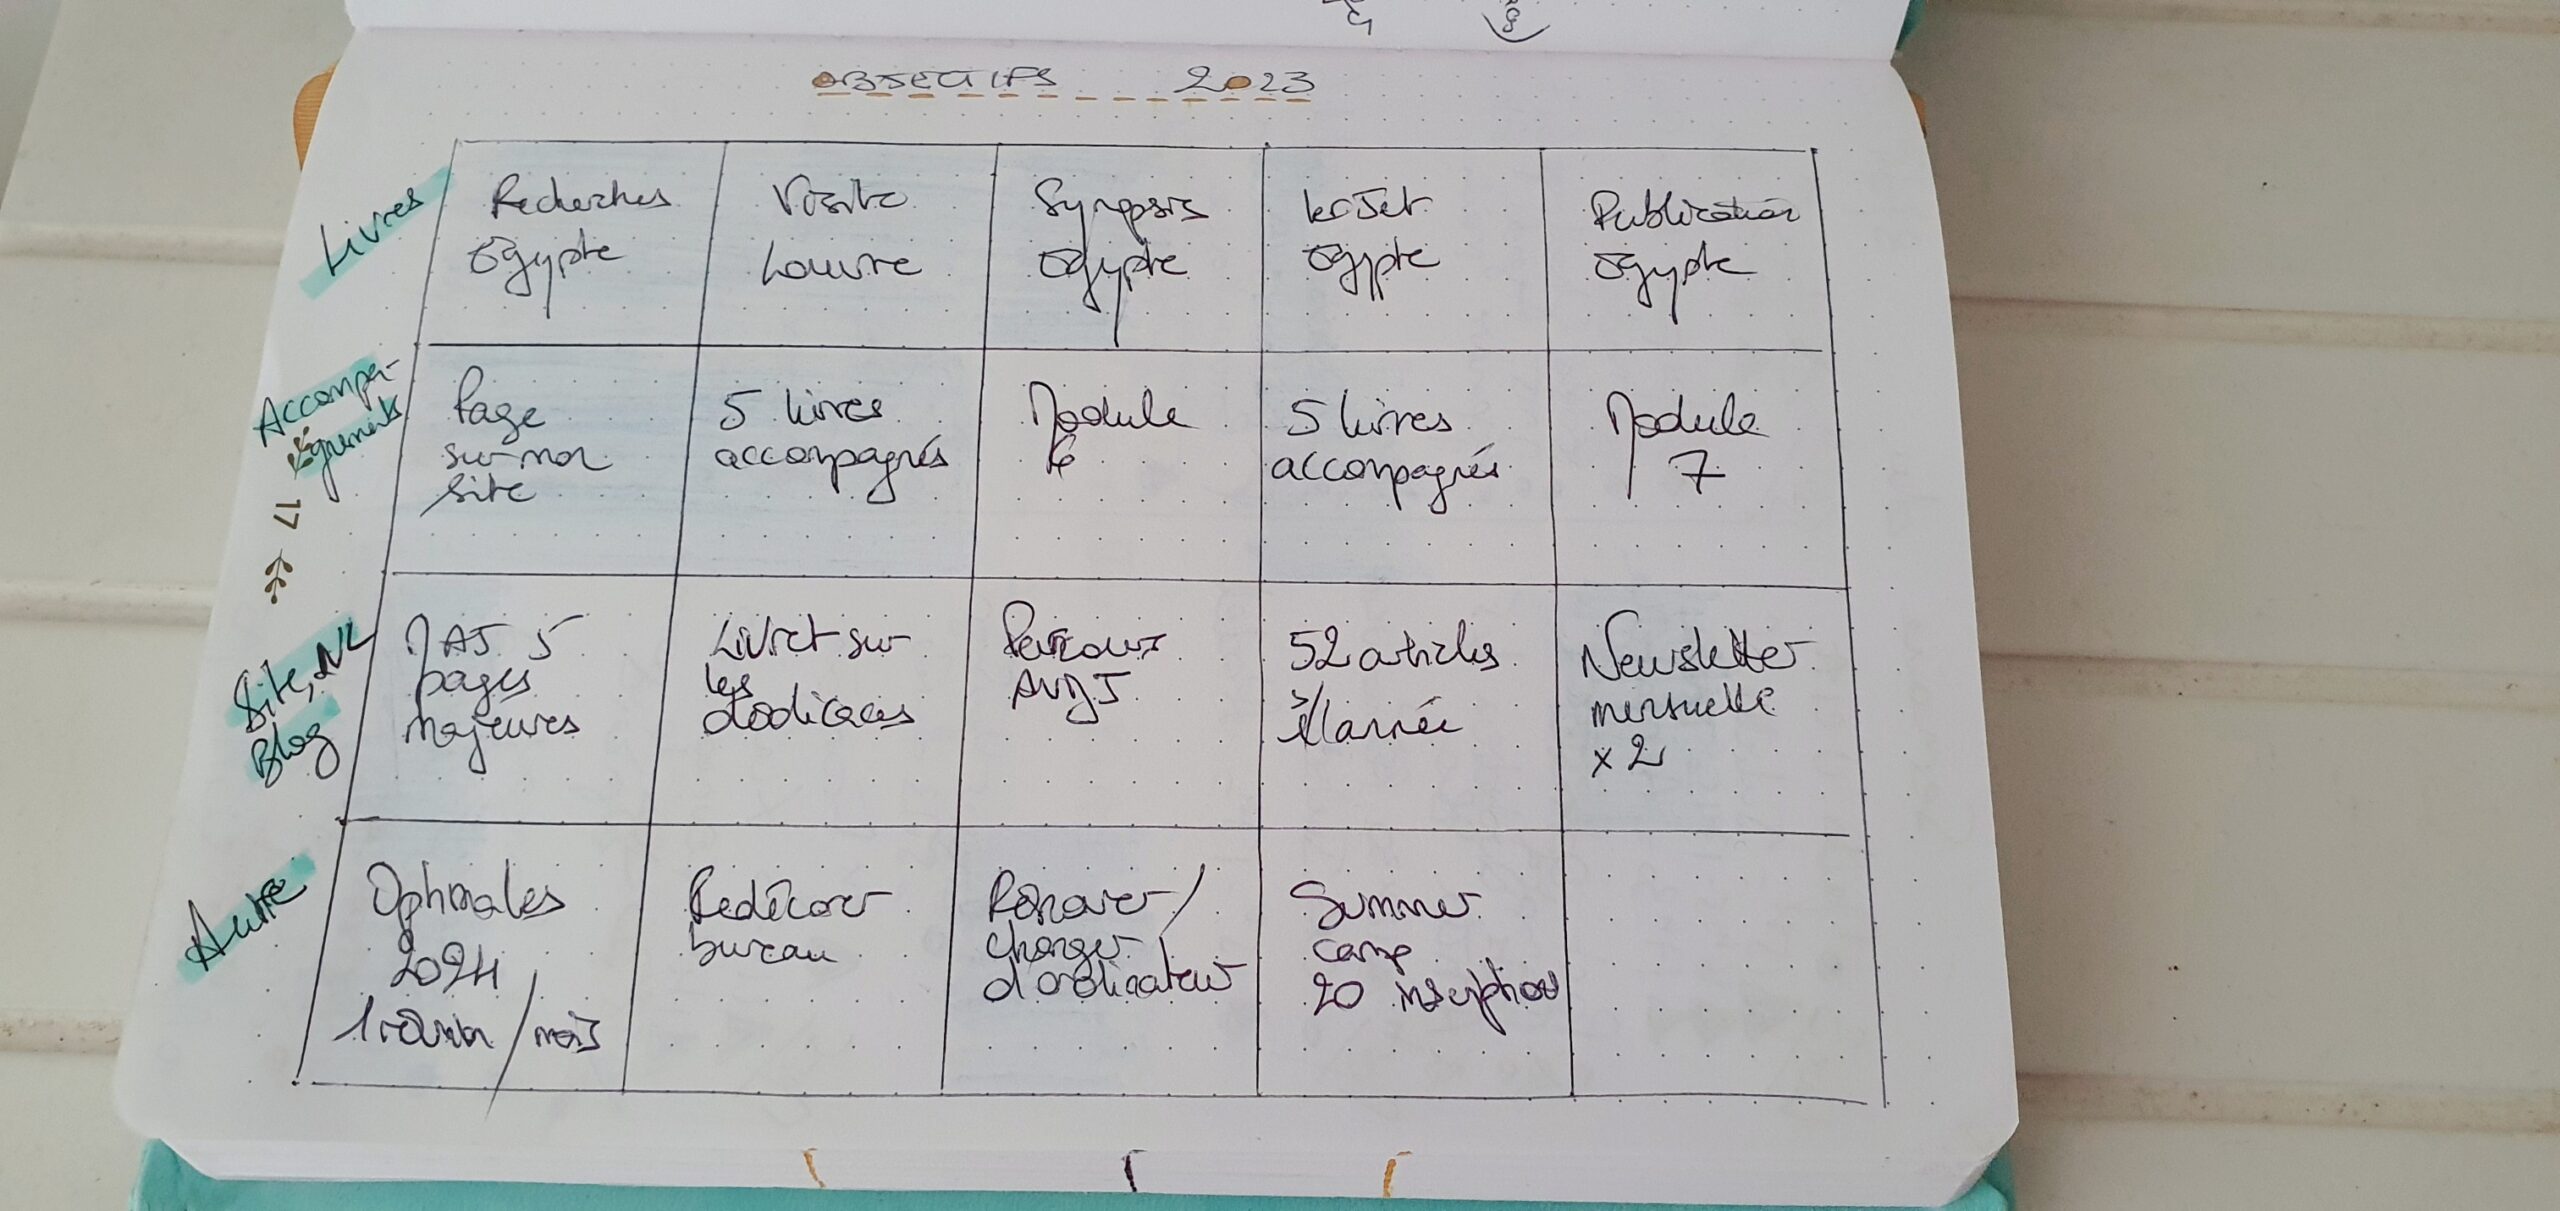 OBJECTIFS 2023
Livres
Recherches
Égypte
Visite
Louvre
Synopsis
Égypte
1er Jet
Égypte
Publication
Égypte
Accompa-
gnements
Page
sur mon
site
5 livres
accompagnés
Module
6
5 livres
accompagnés
Module
7
17
Site, NL
Blog
MAJ 5
pages
majeures
Livret sur
les
dédicaces
Parcours
52 articles
l'année
Newsletter
mensuelle
x 2
Autre
2024
1 réunion / mois
Redécorer
bureau
Rénover /
changer
d'ordinateur
Summer
camp
20 inscriptions